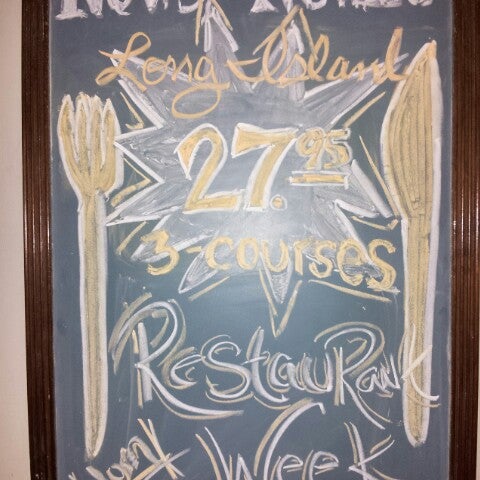 Long Island
27.95
3-courses
Restaurant
Next Week